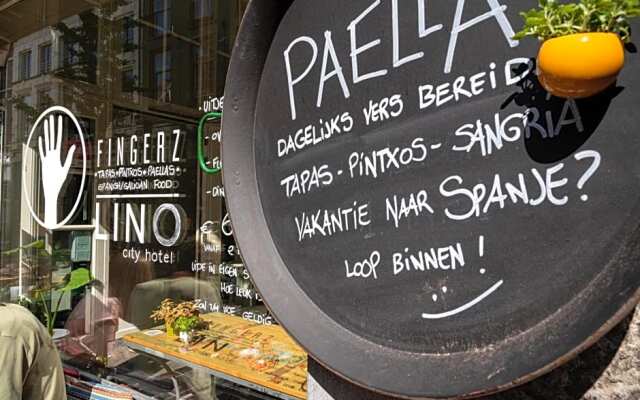 PAELLA
DAGELIJKS VERS BEREID
TAPAS - PINTXOS - SANGRIA
VAKANTIE NAAR SPANJE?
LOOP BINNEN!
FINGERZ
TAPAS PINTXOS PAELLAS
SPANISH/
FOOD
LINO
city hotel
IN EIGEN
HOE
HOE GELDIG